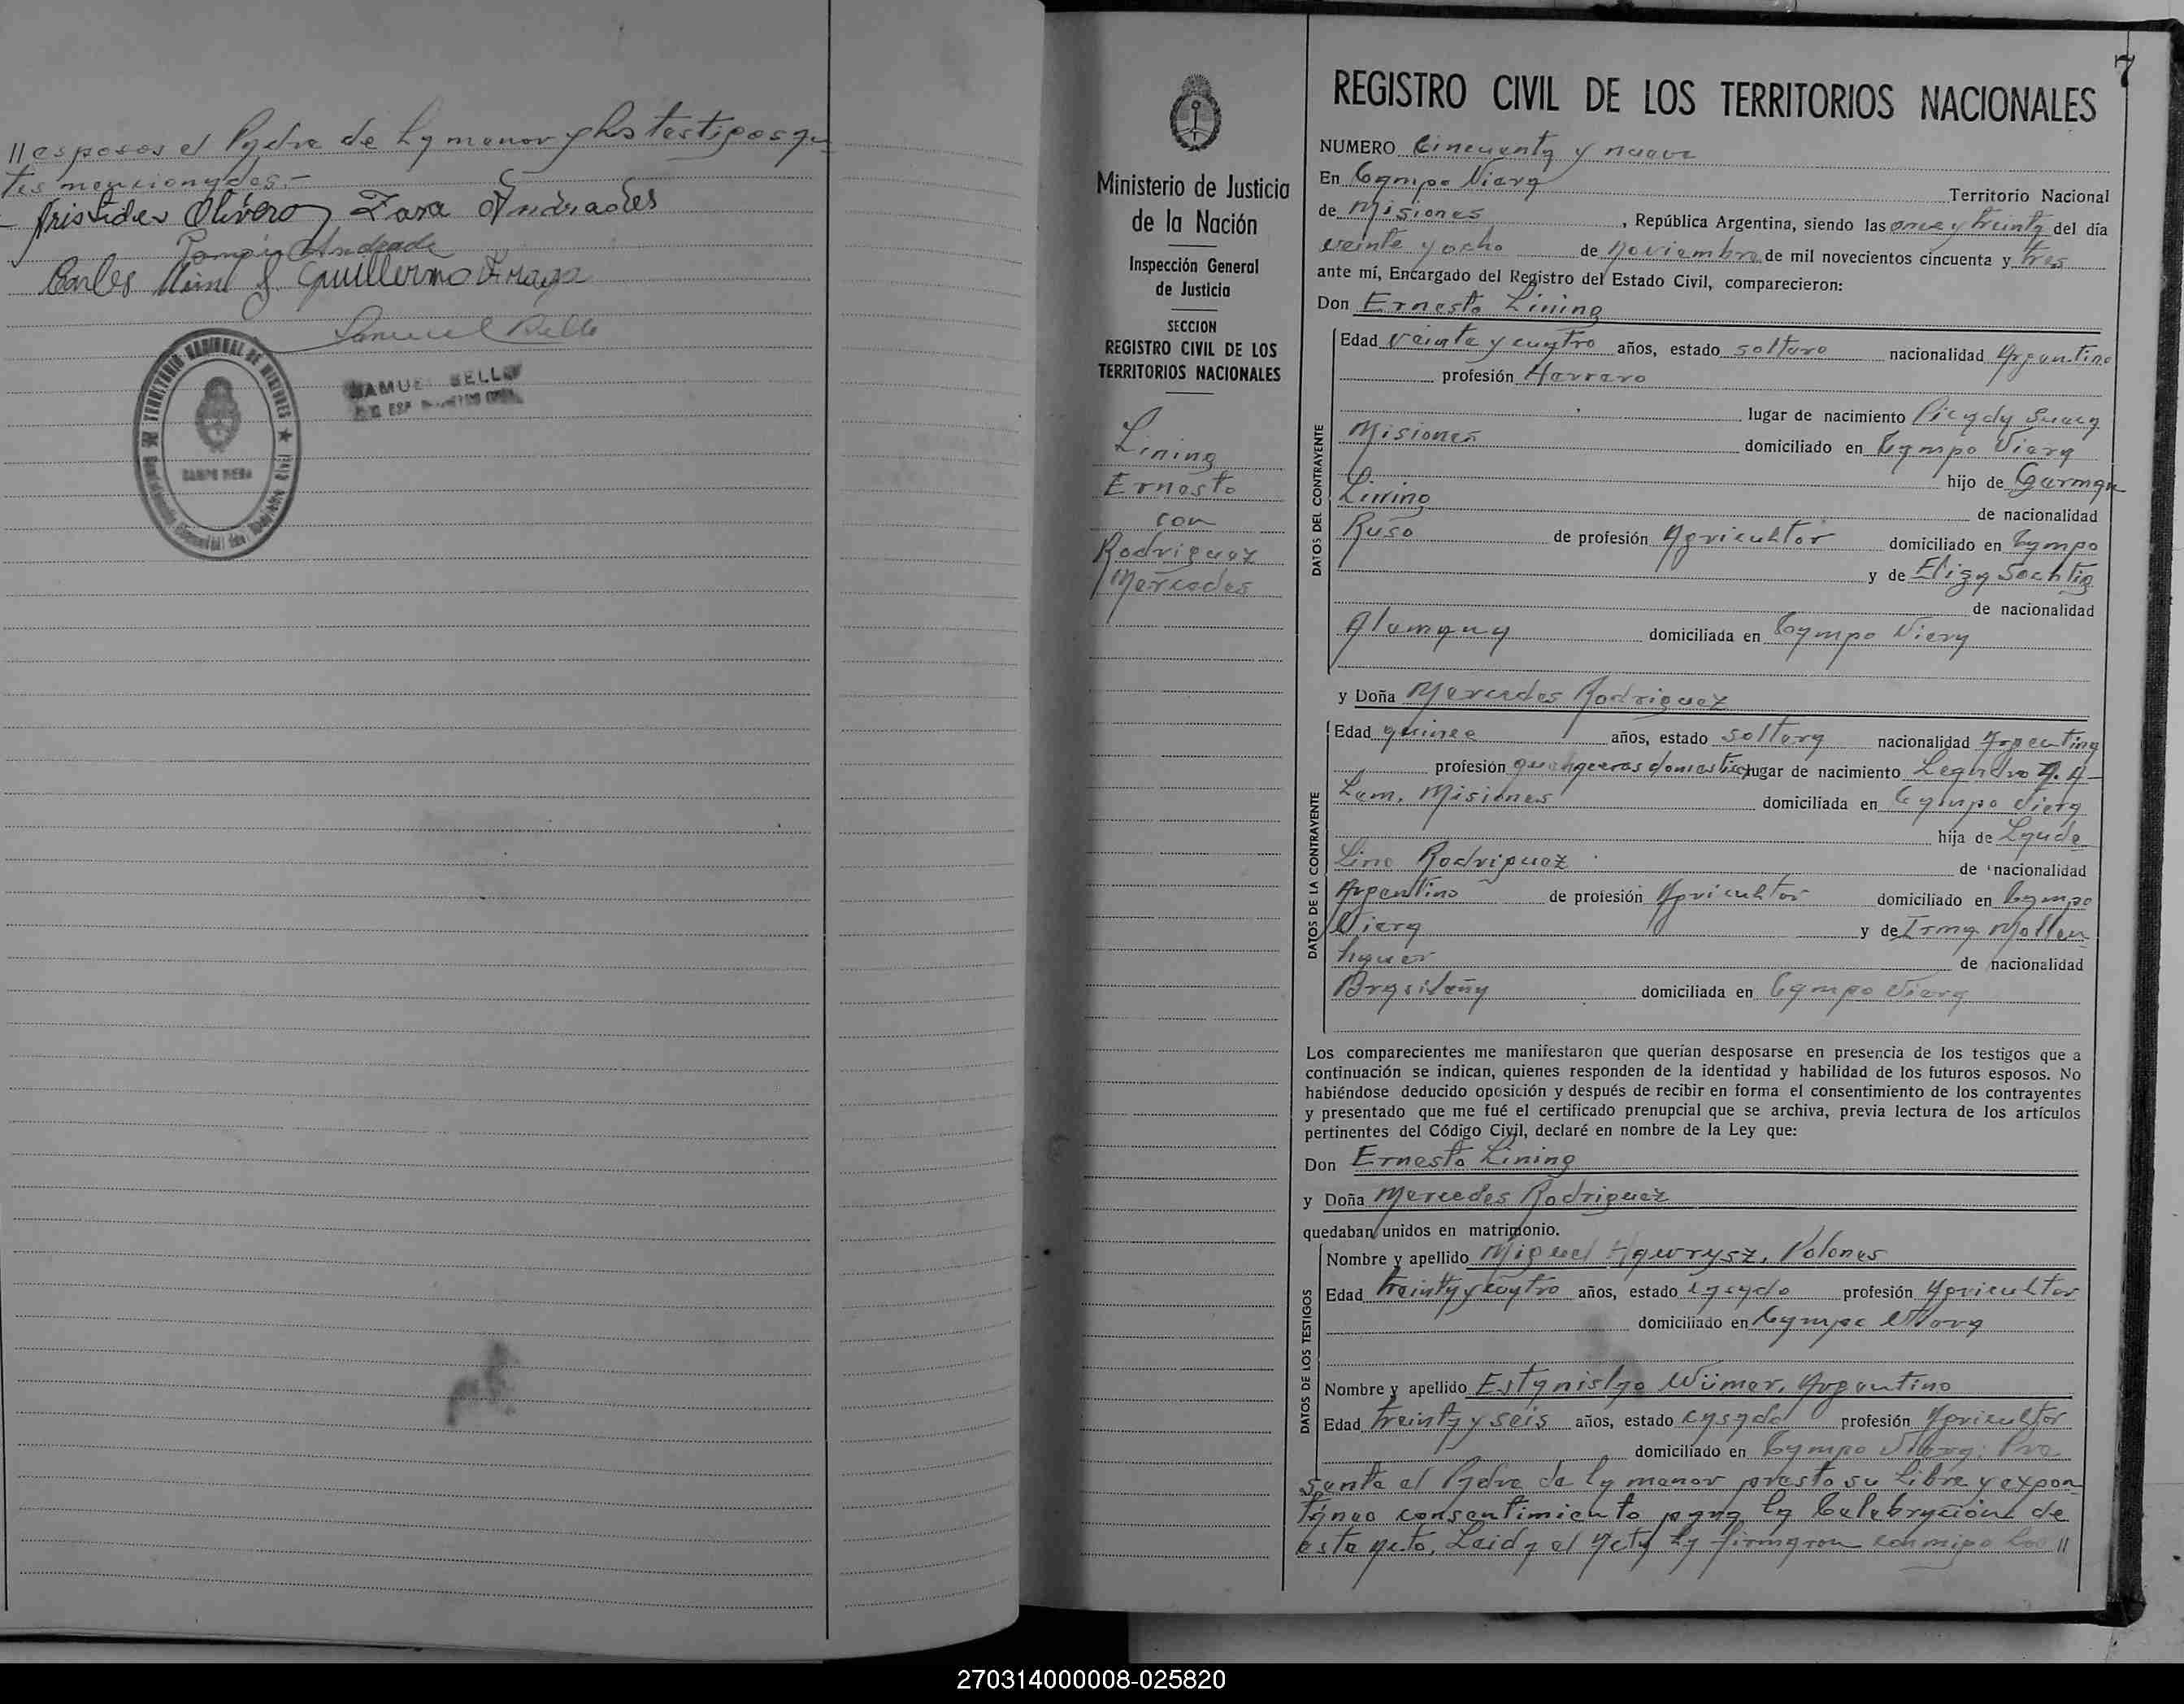 // esposos el Padre de la menor y los testigos an
tes mencionados.-
Aristides Olivera Zara Andrades
Andrade
Carlos Guillermo Fraga
Samuel Bello
TERRITORIO NACIONAL DE MISIONES
CAMPO VIERA
SAMUEL BELLO
7
REGISTRO CIVIL DE LOS TERRITORIOS NACIONALES
Ministerio de Justicia
de la Nación
Inspección General
de Justicia
SECCION
REGISTRO CIVIL DE LOS
TERRITORIOS NACIONALES
Lining
Ernesto
con
Rodriguez
Mercedes
NUMERO Cincuenta y nueve
En Campo Viera Territorio Nacional
de Misiones, República Argentina, siendo las once y treinta del día
veinte y ocho de Noviembre de mil novecientos cincuenta y tres
ante mí, Encargado del Registro del Estado Civil, comparecieron:
Don Ernesto Lining
DATOS DEL CONTRAYENTE
Edad veinte y cuatro años, estado soltero nacionalidad Argentino
profesión Herrero
lugar de nacimiento Picada Sueca
Misiones domiciliado en Campo Viera
hijo de German
Lining de nacionalidad
Ruso de profesión Agricultor domiciliado en Campo
y de Elisa Sochtig
de nacionalidad
Alemana domiciliada en Campo Viera
y Doña Mercedes Rodriguez
DATOS DE LA CONTRAYENTE
Edad quince años, estado soltera nacionalidad Argentina
profesión quehaceres domestico lugar de nacimiento Leandro N. A-
Lem. Misiones domiciliada en Campo Viera
hija de Laude
Lino Rodriguez de nacionalidad
Argentino de profesión Agricultor domiciliado en Campo
Viera y de Irma Mollen
hauer de nacionalidad
Brasileña domiciliada en Campo Viera
Los comparecientes me manifestaron que querían desposarse en presencia de los testigos que a
continuación se indican, quienes responden de la identidad y habilidad de los futuros esposos. No
habiéndose deducido oposición y después de recibir en forma el consentimiento de los contrayentes
y presentado que me fué el certificado prenupcial que se archiva, previa lectura de los artículos
pertinentes del Código Civil, declaré en nombre de la Ley que:
Don Ernesto Lining
y Doña Mercedes Rodriguez
quedaban unidos en matrimonio.
DATOS DE LOS TESTIGOS
Nombre y apellido Miguel Hawrysz, Polones
Edad treinta y cuatro años, estado casado profesión Agricultor
domiciliado en Campo Viera
Nombre y apellido Estanislao Wümer, Argentino
Edad treinta y seis años, estado casado profesión Agricultor
domiciliado en Campo Viera. Pre
sente el Padre de la menor presto su libre y expon
taneo consentimiento para la Celebracion de
este acto. Leida el Acta la firmaron conmigo los //
270314000008-025820